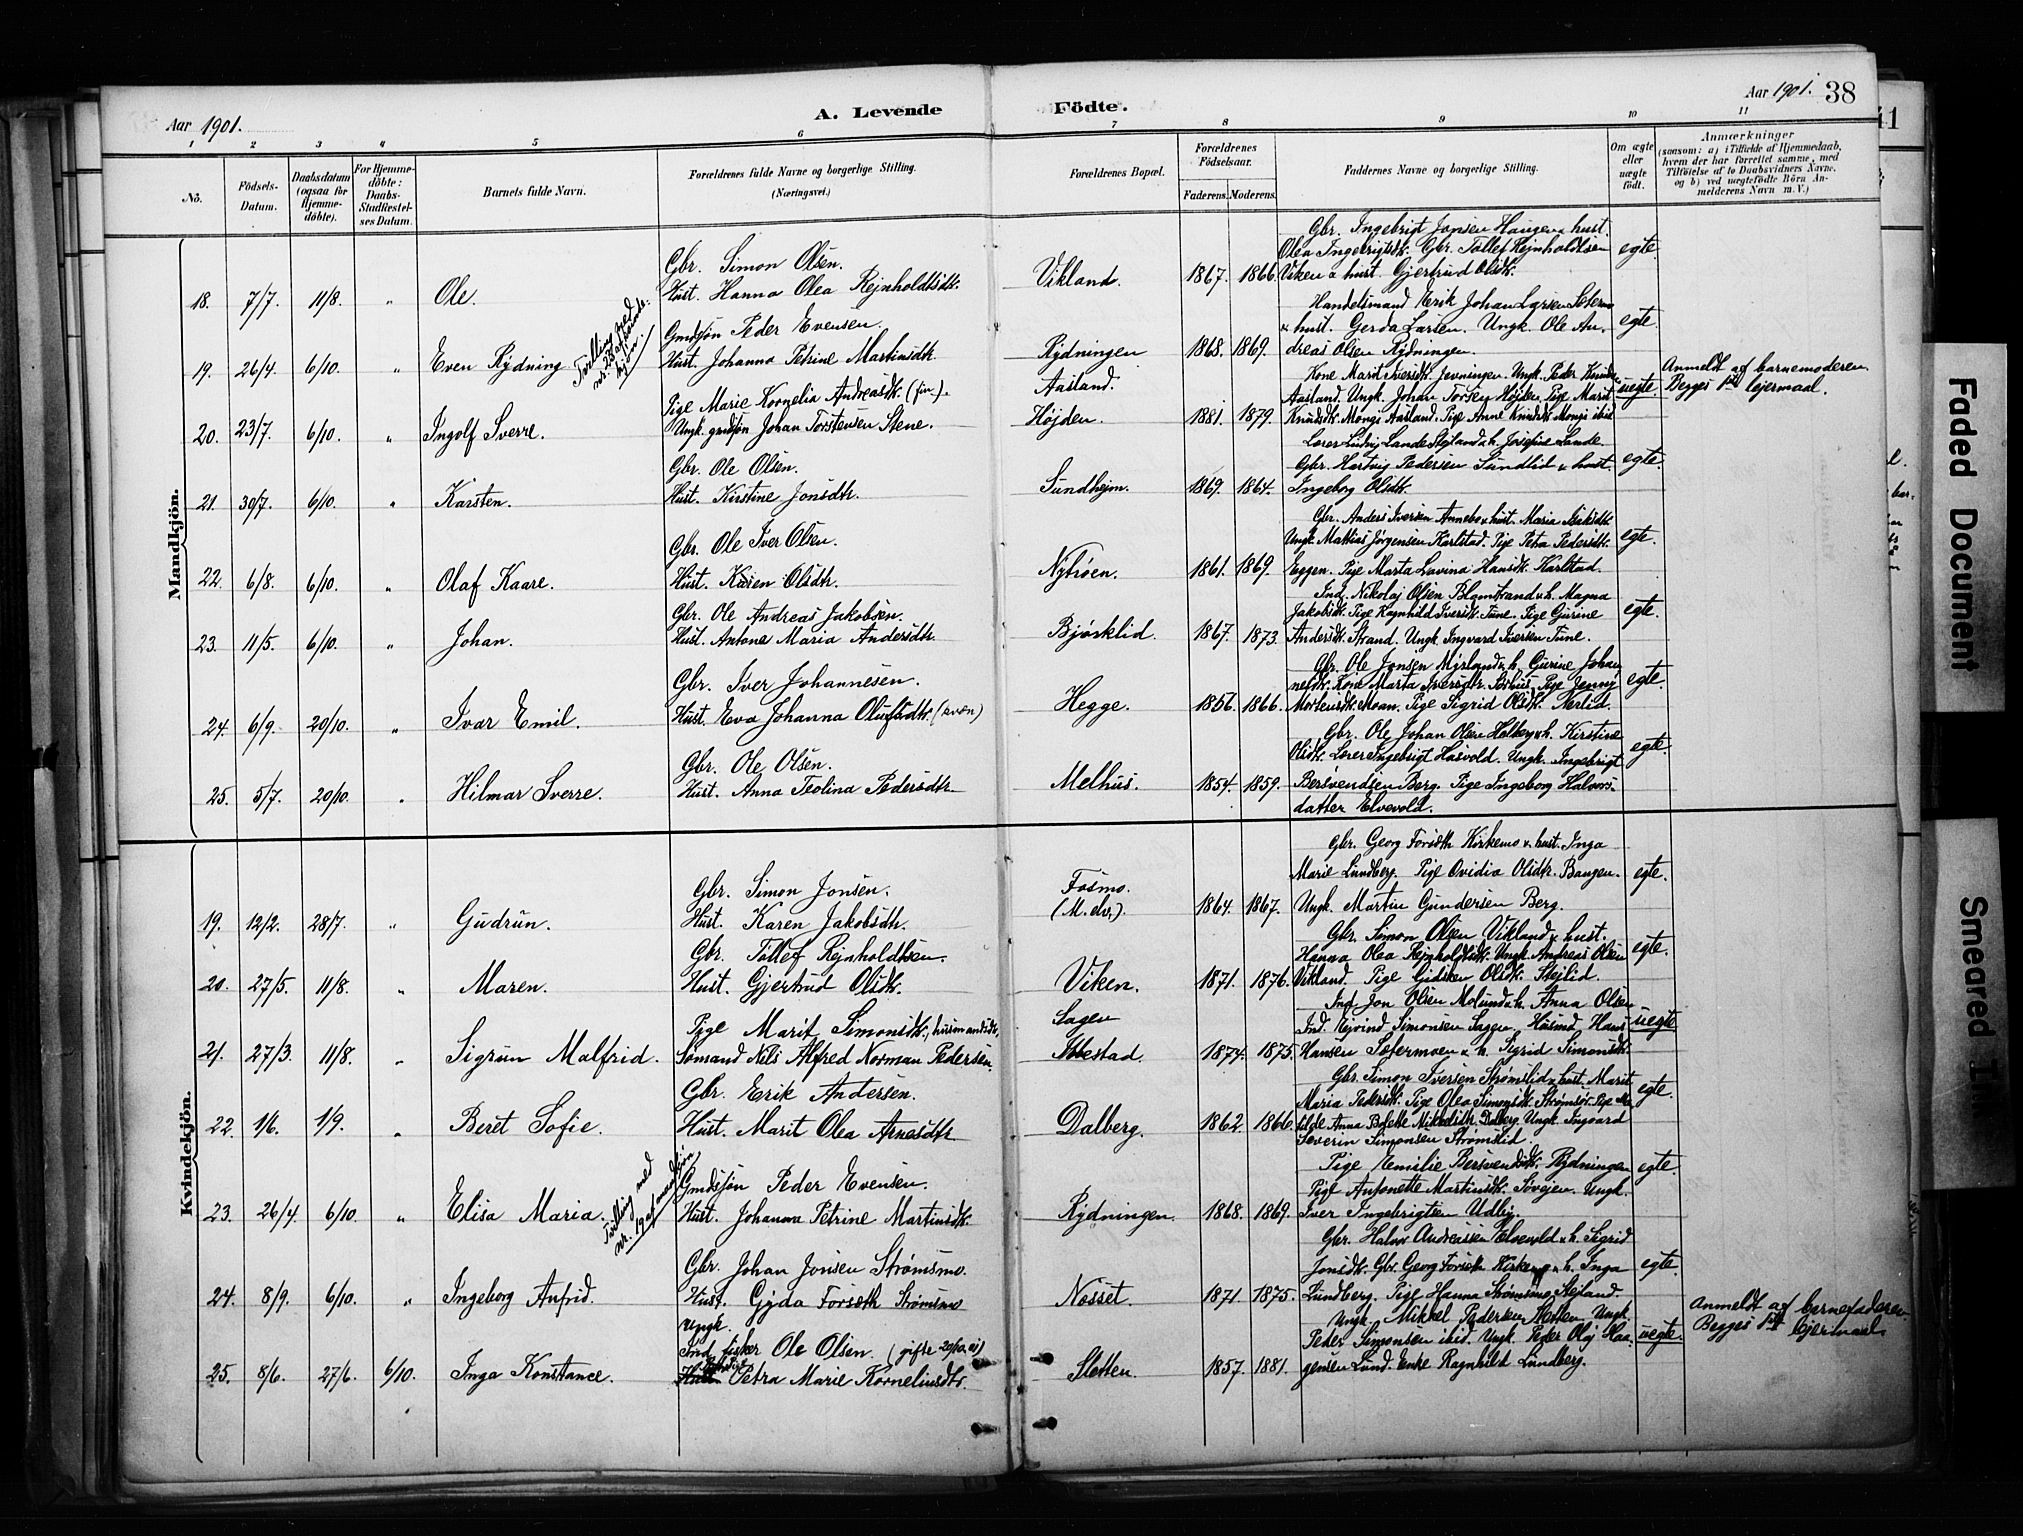 Aar 1901.
A. Levende Födte.
Aar 1901. 38
1 2 3 4 5 6 7 8 9 10 11
No.
Födsels-Datum.
Daabsdatum (ogsaa for Hjemme-döbte).
For Hjemme-döbte: Daabs-Stadfæstel-ses Datum.
Barnets fulde Navn.
Forældrenes fulde Navne og borgerlige Stilling. (Næringsvei.)
Forældrenes Bopæl.
Forældrenes Födselsaar.
Faderens. Moderens.
Faddernes Navne og borgerlige Stilling.
Om ægte eller uægte födt.
Anmærkninger
(saasom: a) i Tilfælde af Hjemmedaab,
hvem der har forrettet samme, med
Tilföielse af to Daabsvidners Navne.
og b) ved uægtefödte Börn An-
melderens Navn m. V.)
Mandkjön.
Gbr. Ingebrigt Jonsen Haugen & hust.
Gbr. Simon Olsen.
Olea Ingebrigtsdtr. Gbr. Tollef Rejnholdtsen egte.
18. 7/7. 11/8. " Ole. Hust. Hanna Olea Rejnholdtsdtr. Vikland. 1867. 1866. Viken & hust. Gjertrud Olsdtr.
Handelsmand Erik Johan Larsen
Gmdsjøn Peder Evensen.
& hust. Gerda Larsen. Ungk. Ole An- egte.
19. 26/4. 6/10. " Even Rydning Tvilling med nr. 23 af kvinde-kjøn Hust. Johanna Petrine Martinsdtr. Rydningen 1868. 1869. dreas Olsen Rydningen.
Kone Marit Iversdtr. Jevningen. Ungk. Peder
Pige Marie Kornelia Andreasdtr. Aasland. Aasland. Ungk. Johan Torsen Højden, Pige Marit uegte. Anmeldt af barnemoderen. Begges 1st lejermaal.
20. 23/7. 6/10. " Ingolf Sverre. Ungk. gmdsøn Johan Torstensen Stene. Højden. 1881. 1879. Knudsdtr. Monge Aasland. Pige Anne Knudsdtr. Monge ibid
Lærer Ludvig Lande & h. Josefine Lande.
Gbr. Ole Olsen.
Gbr. Hartvig Pedersen Sundlid & hust. egte.
21. 30/7. 6/10. " Karsten. Hust. Kirstine Jonsdtr. Sundhejm. 1869. 1864. Ingeborg Olsdtr.
Gbr. Anders Iversen Annebo & hust. Maria Isaksdtr.
Gbr. Ole Iver Olsen.
Ungk. Mathias Jørgensen Karlstad. Pige Petra Pedersdtr. egte.
22. 6/8. 6/10. " Olaf Kaare. Hust. Karen Olsdtr. Nytrøen. 1861. 1869. Eggen. Pige Marta Lovina Hansdtr. Karlstad.
Ind. Nikolaj Olsen Blomstrand & h. Magna
Gbr. Ole Andreas Jakobsen.
Jakobsdtr. Pige Ragnhild Iversdtr. Tune. Pige Gurine egte.
23. 11/5. 6/10. " Johan. Hust. Antone Maria Andersdtr. Bjørklid. 1867. 1873. Andersdtr. Strand. Ungk. Ingvard Iversen Tune.
Gbr. Ole Jonsen Myrland & h. Gurine Johan
Gbr. Iver Johannesen.
nesdtr. Kone Marta Iversdtr. Pige Jenny egte.
24. 6/9. 20/10. " Ivar Emil. Hust. Eva Johanna Olufsdtr. (kvæn) Hegge. 1856. 1866. Mortensdtr. Moan. Pige Sigrid Olsdtr. Nerlid.
Gbr. Ole Johan Olsen Holberg & h. Kirstine
Gbr. Ole Olsen.
Olsdtr. Lærer Ingebrigt Hasvold. Ungk. Ingebrigt egte.
25. 5/7. 20/10. " Hilmar Sverre. Hust. Anna Teolina Pedersdtr. Melhus. 1854. 1859. Bersvendsen Berg. Pige Ingeborg Halvors-
datter Elvevold.
Kvindekjön.
Gbr. Georg Forseth Kirkemo & hust. Inga
Gbr. Simon Jonsen. Fosmo. Marie Lundberg. Pige Ovidia Olsdtr. Bangen. egte.
19. 12/2. 28/7. " Gudrun. Hust. Karen Jakobsdtr. (M. elv.). 1864. 1867. Ungk. Martin Gundersen Berg.
Gbr. Simon Olsen Vikland & hust.
Gbr. Tollef Rejnholdtsen. Hanna Olea Rejnholdtsdtr. Ungk. Andreas Olsen egte.
20. 27/5. 11/8. " Maren. Hust. Gjertrud Olsdtr. Viken. 1871. 1876. Vikland. Pige Gidsken Olsdtr. Stejlid.
Ind. Jon Olsen Molund & h. Anna Olsen
Pige Marit Simonsdtr., husmandsdtr. Sagen Ind. Ejvind Simonsen Sagen, Husmd. Hans uegte
21. 27/3. 11/8. " Sigrun Malfrid. Sømand Nils Alfred Norman Pedersen. Ibbestad. 1874. 1875. Hansen Sætermoen & h. Sigrid Simonsdtr.
Gbr. Simon Iversen Strømslid & hust. Marit
Gbr. Erik Andersen. Maria Pedersdtr. Pige Olea Simonsdtr. Strømsør. Pige Ma egte.
22. 1/6. 1/9. " Beret Sofie. Hust. Marit Olea Arnesdtr. Dalberg. 1862. 1866. tilde Anna Bolette Mikkelsdtr. Dalberg. Ungk. Ingvard
Severin Simonsen Strømslid.
Pige Emilie Bersvendsdtr. Rydningen egte.
Gmdsjøn Peder Evensen. Pige Antonette Martinsdtr. Søvejen. Ungk.
23. 26/4. 6/10. " Elisa Maria. Tvilling med nr. 19 af mandkjøn Hust. Johanna Petrine Martinsdtr. Rydningen. 1868. 1869. Iver Ingebrigtsen Udby.
Gbr. Halvor Andreassen Elvevold & h. Sigrid
Gbr. Johan Jonsen Strømsmo. Jonsdtr. Gbr. Georg Forseth Kirkemo & h. Inga egte.
24. 8/9. 6/10. " Ingeborg Anfrid. Hust. Gyda Forseth Strømsmo Nesset. 1871. 1875. Lundberg. Pige Hanna Strømsmo
Ungk. Ungk. Mikkel Pedersen Sletten, Ungk.
Ind. fisker Ole Olsen. (gifte 20/10.01) Peder Simonsen ibid. Ungk. Peder Olaj Haa- uegte. Anmeldt af barnefaderen. Begges 1st lejermaal.
25. 8/6. 27/6. 6/10. Inga Konstance. Petra Marie Korneliusdtr. Sletten. 1857. 1881. gensen Lund. Enke Ragnhild Lundberg.
41
Faded Document
Smeared